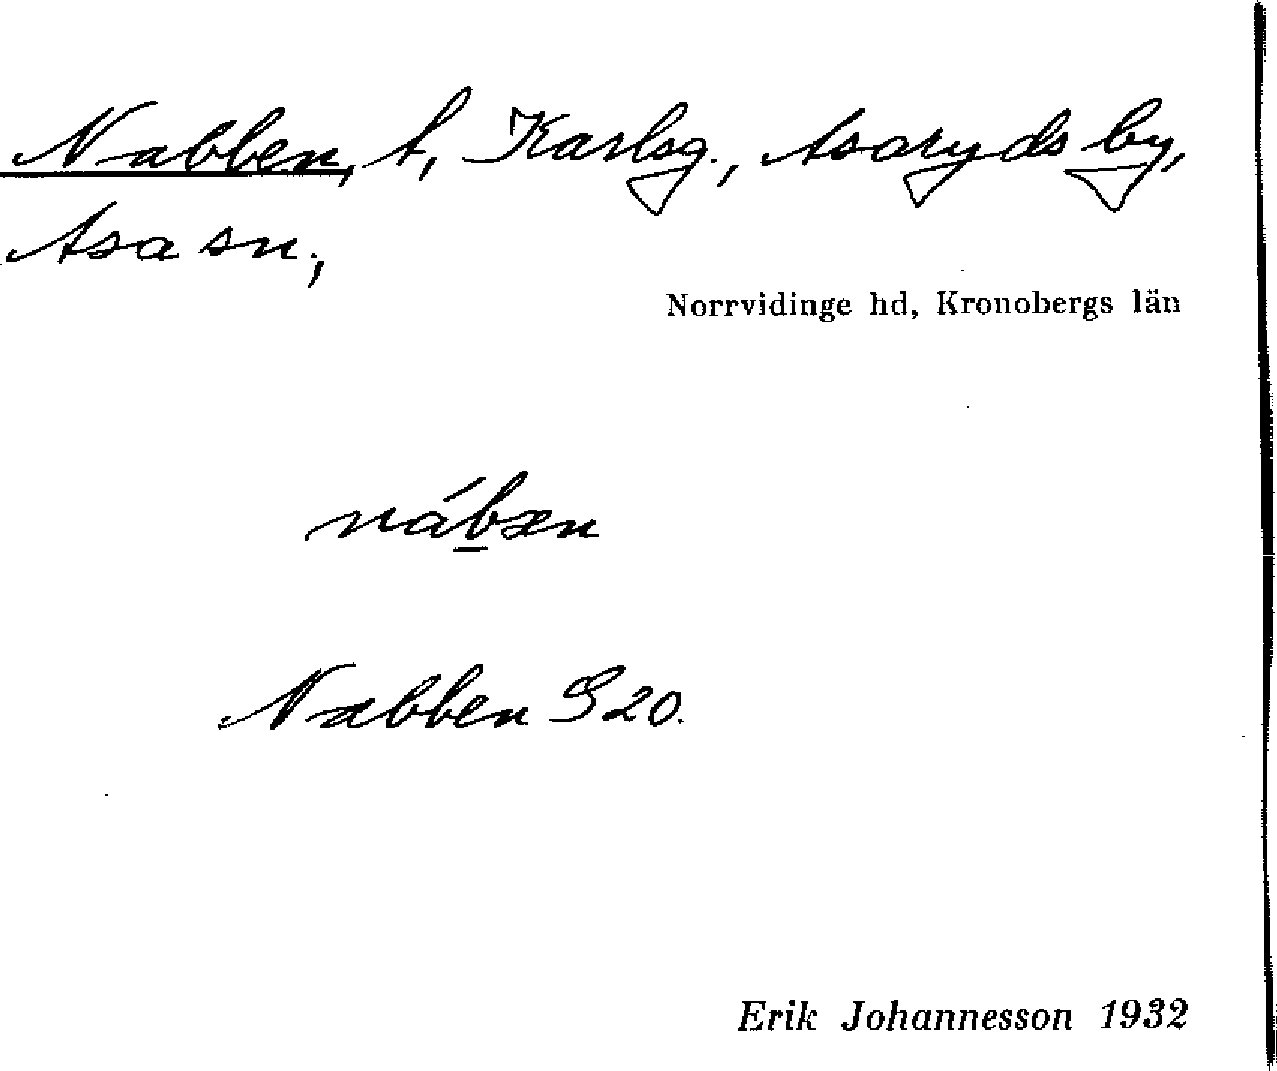 Nabben, t, Karlsg., Asaryds by,
Asa sn.,
Norrvidinge hd, Kronobergs län
náb̲æn
Nabben S20.
Erik Johannesson 1932